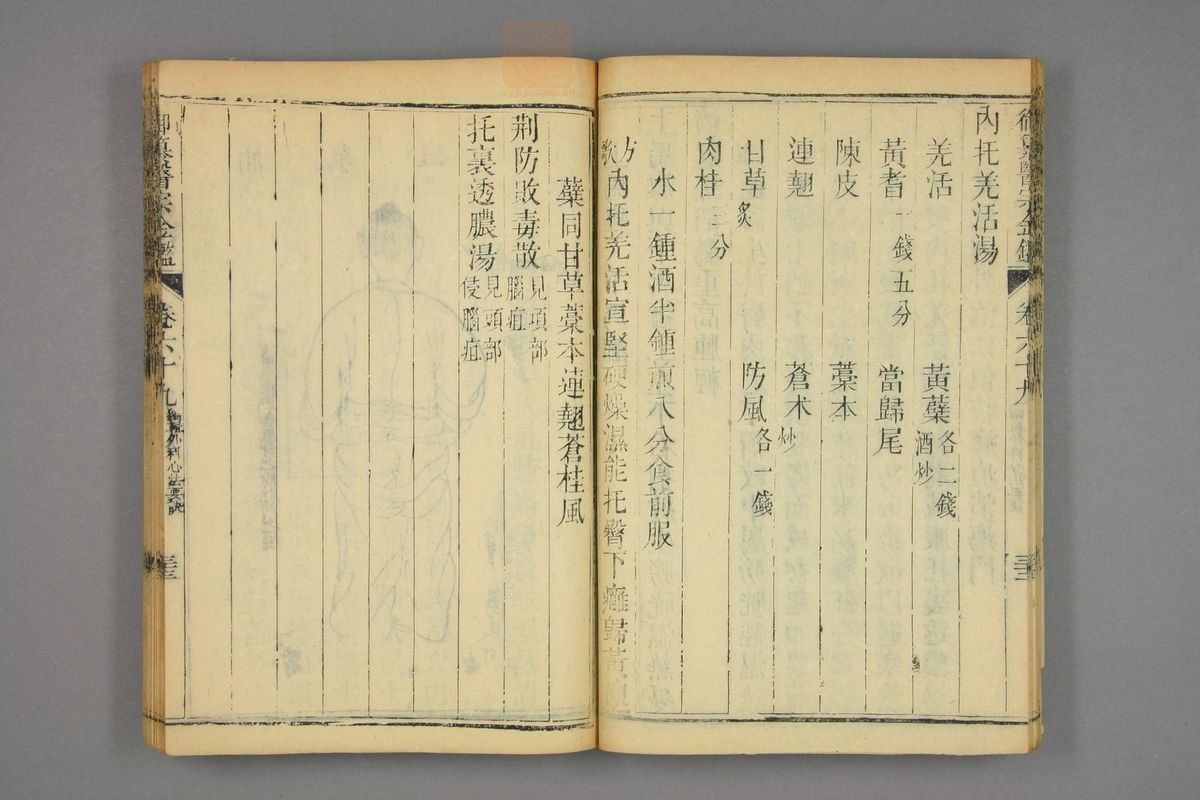 內托羌活湯
羌活 黃蘗各二錢酒炒
黃耆一錢五分 當歸尾
陳皮 藁本
連翹 蒼朮炒
甘草炙 防風各一錢
肉桂三分
水一鍾酒半鍾煎八分食前服
方歌內托羌活宣堅硬燥濕能托臀下癰歸黃
蘗同甘草藁本連翹蒼桂風
荆防敗毒散見項部腦疽
托裏透膿湯見頭部侵腦疽
御纂醫宗金鑑 卷六十九 編輯外科心法要訣 三十三